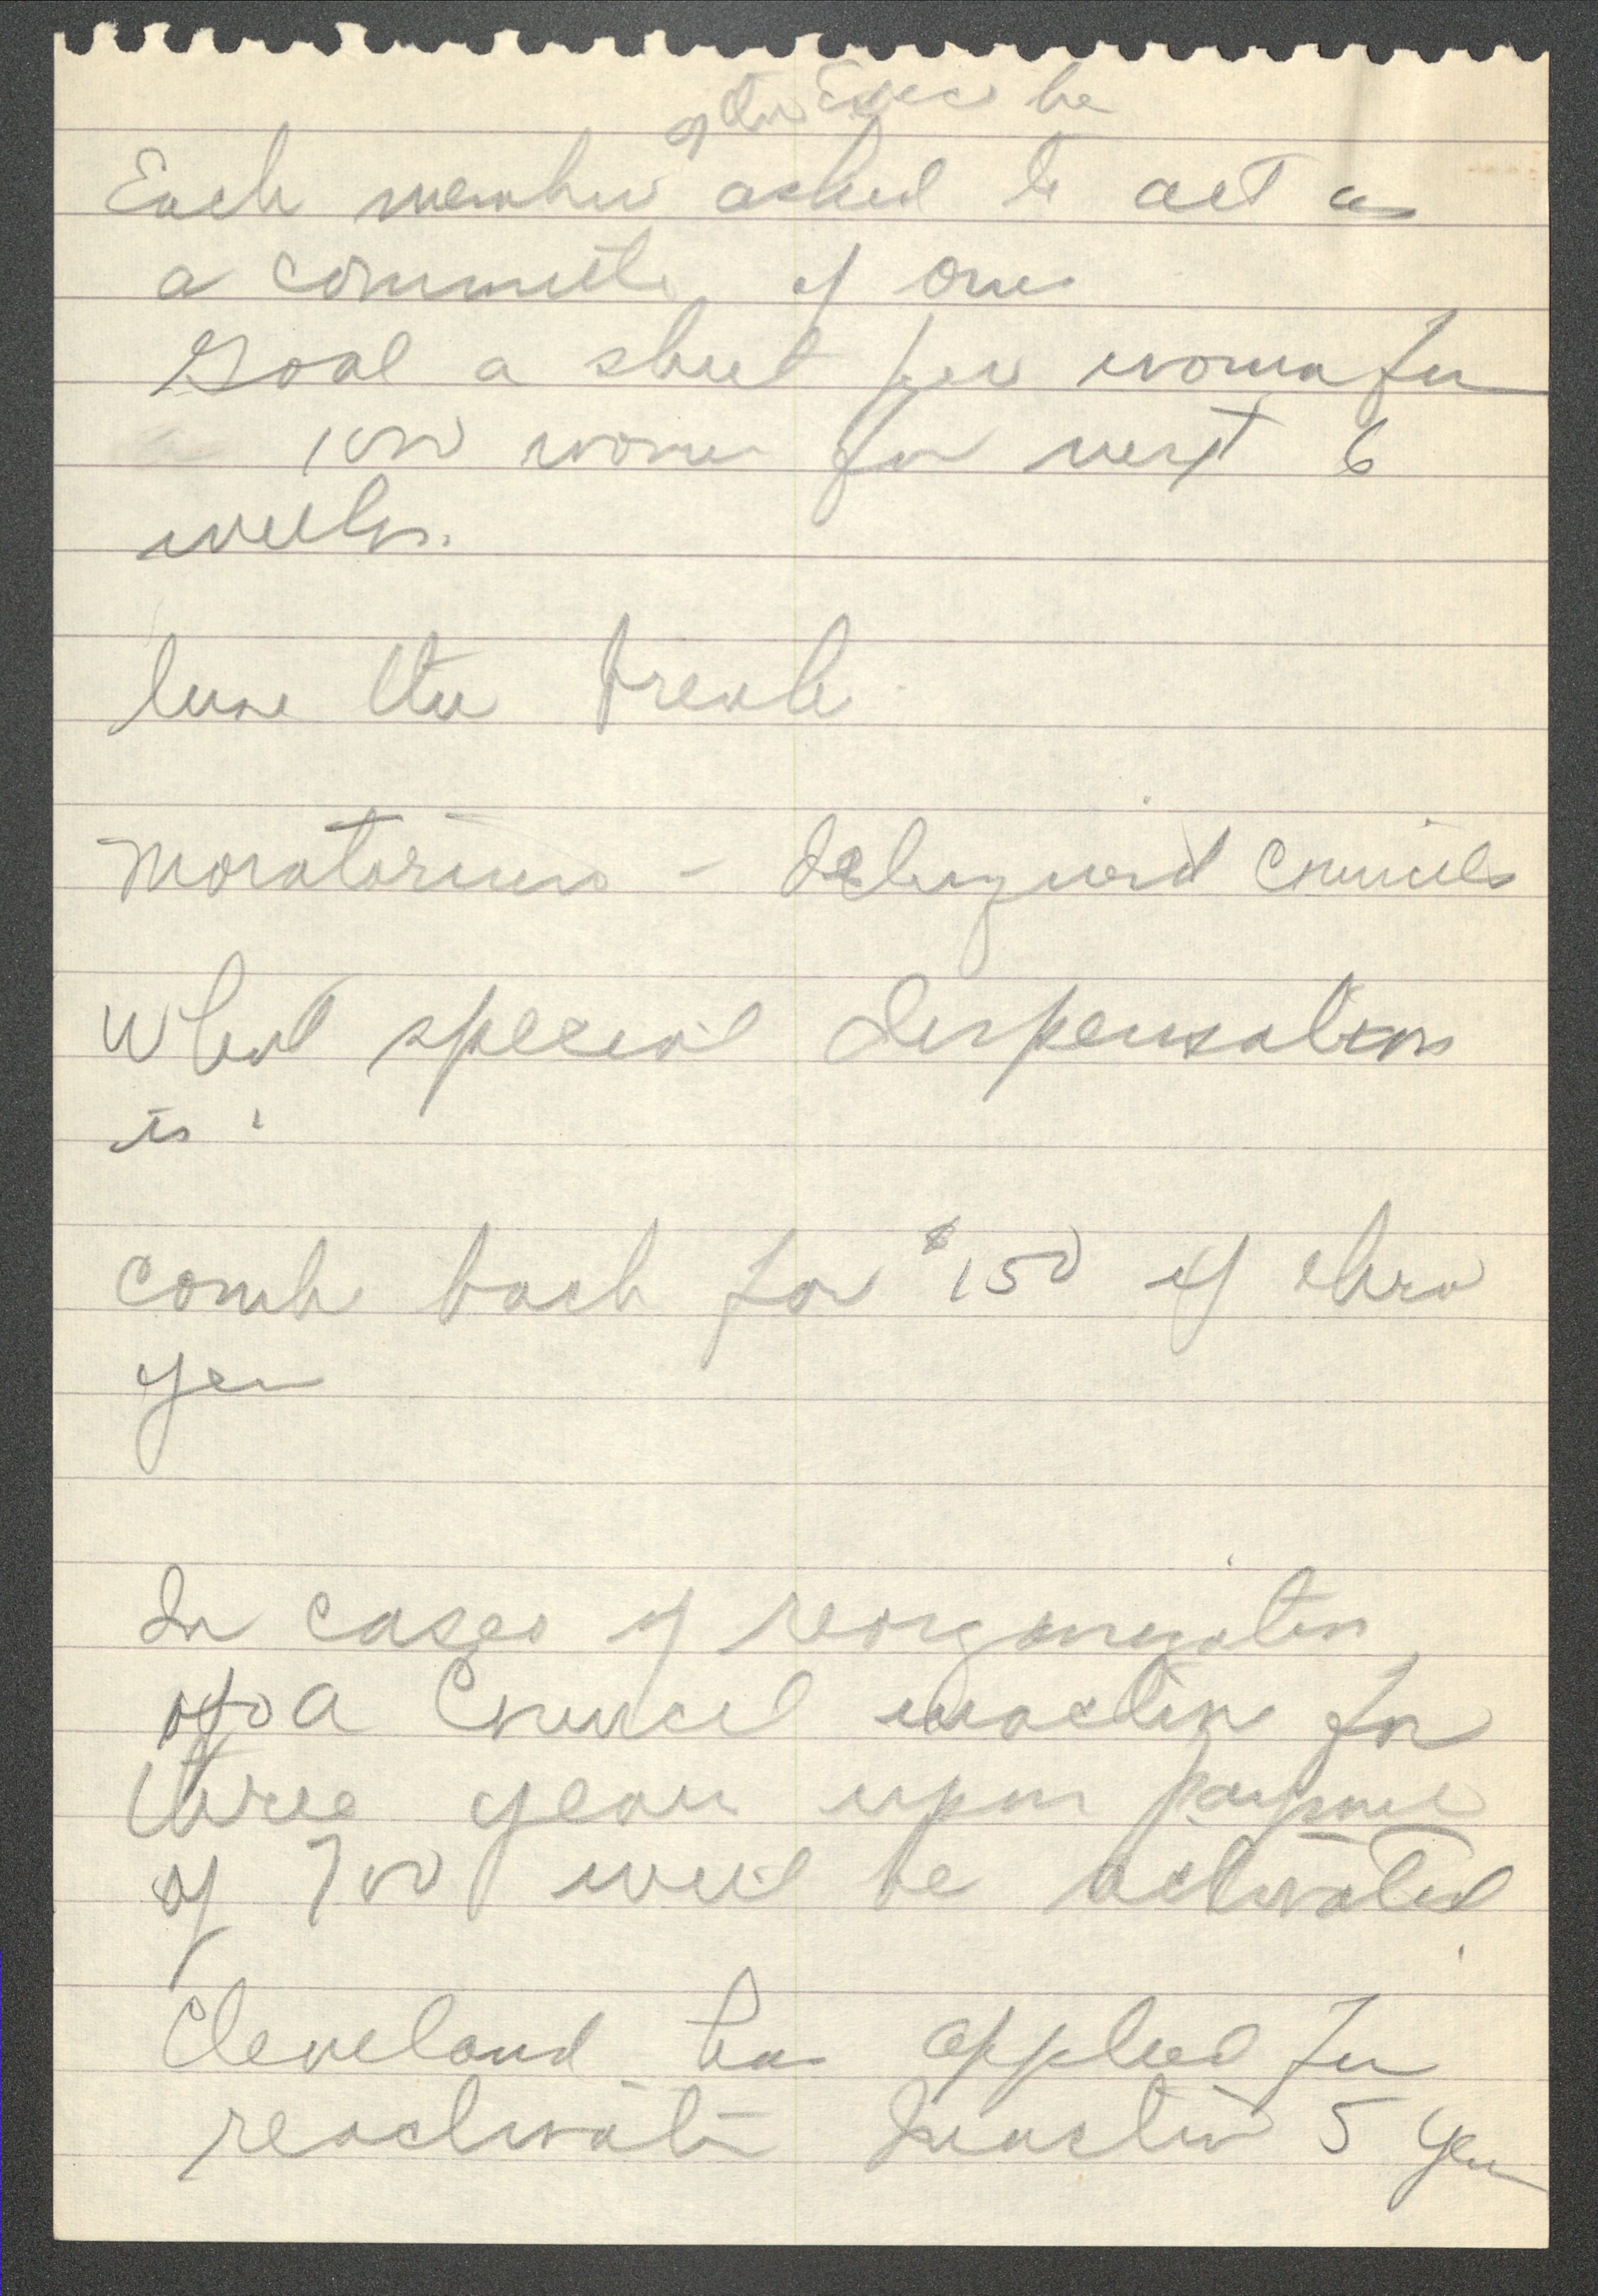 of the Exec be
Each member asked to act as
a committe of one
Goal a sheet per woman for
100 women for next 6
weeks.
the break
Moratorium - Delinquent Councils
What special dispensation
is
come back for $150 if
year
In cases of reorganization
of a Council inactive for
three years upon payment
of 700 will be activated
Cleveland has applied for
reactivation Inactive 5 years